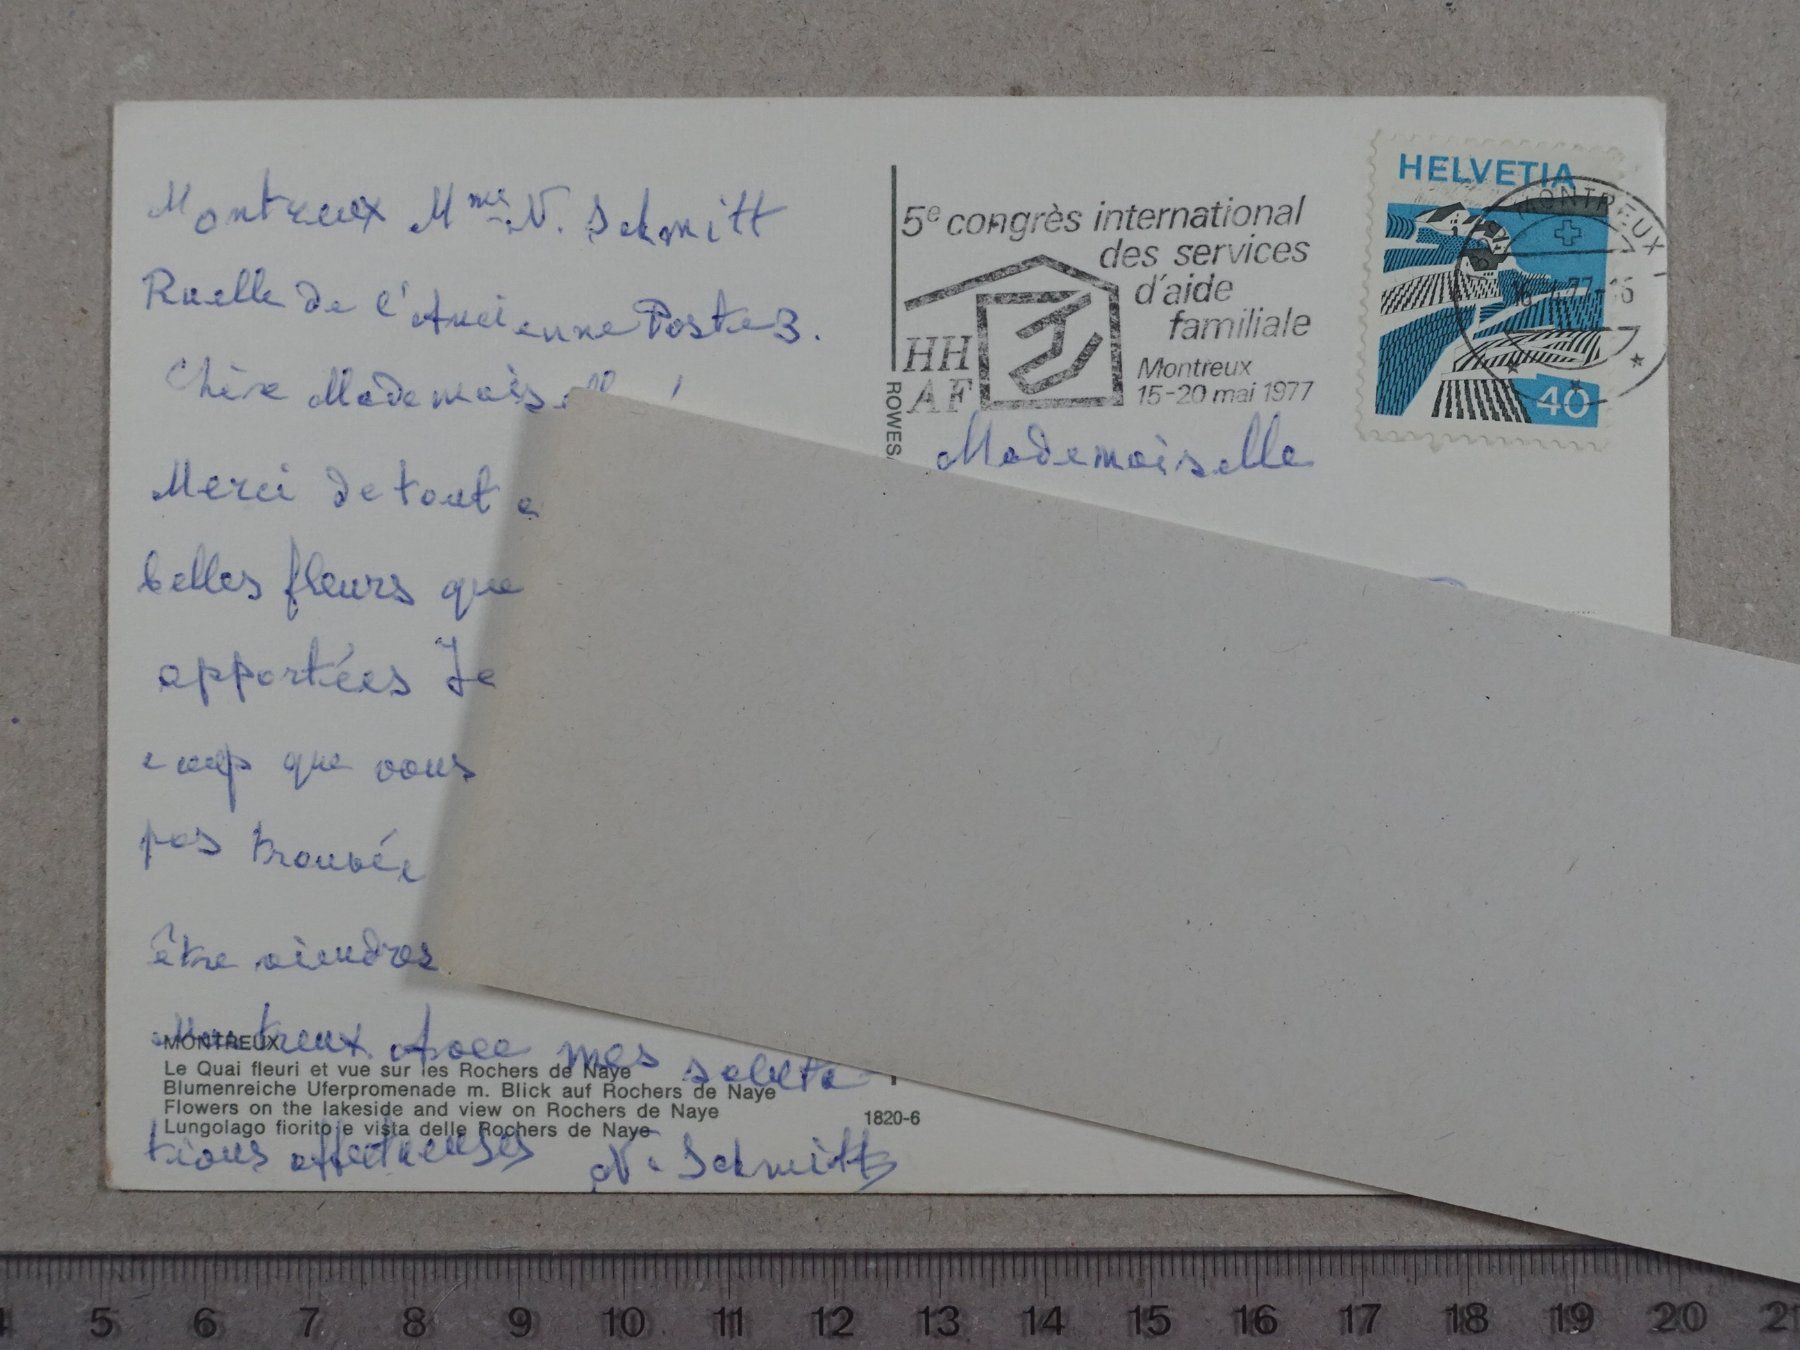 Montreux Mme N. Schmitt
Ruelle de l'Ancienne Poste 3.
Chère
Merci de tout
belles fleurs que
apportées Je
coup que vous
pas trouvée
être viendres
Montreux Avec mes saluta
tions affectueuses N. Schmitt
MONTREUX
Le Quai fleuri et vue sur les Rochers de Naye
Blumenreiche Uferpromenade m. Blick auf Rochers de Naye
Flowers on the lakeside and view on Rochers de Naye
Lungolago fiorito e vista delle Rochers de Naye
1820-6
ROWES
5e congrès international
des services
d'aide
familiale
HH
AF
Montreux
15-20 mai 1977
HELVETIA
MONTREUX 1
40
Mademoiselle
4 5 6 7 8 9 10 11 12 13 14 15 16 17 18 19 20 21